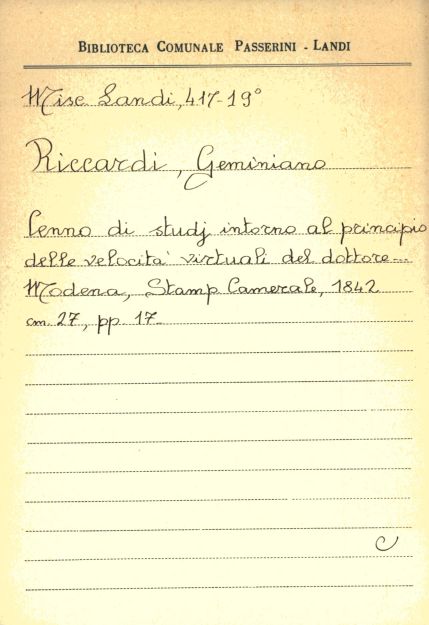 BIBLIOTECA COMUNALE PASSERINI - LANDI
Misc Landi, 417-19°
Riccardi, Geminiano
Cenno di studj intorno al principio
delle velocità virtuali del dottore...
Modena, Stamp Camerale, 1842
cm. 27, pp. 17.
C